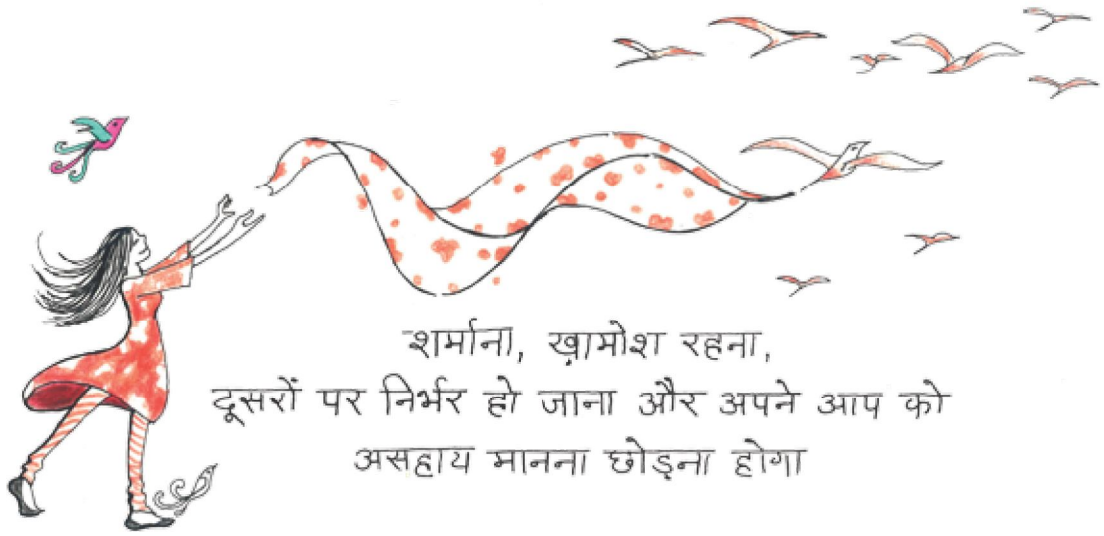 शर्माना, ख़ामोश रहना,
दूसरों पर निर्भर हो जाना और अपने आप को
असहाय मानना छोड़ना होगा